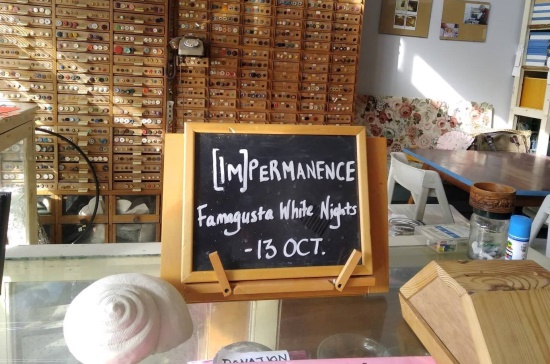 [IM]PERMANENCE
Famagusta White Nights
-13 OCT.
DONATION